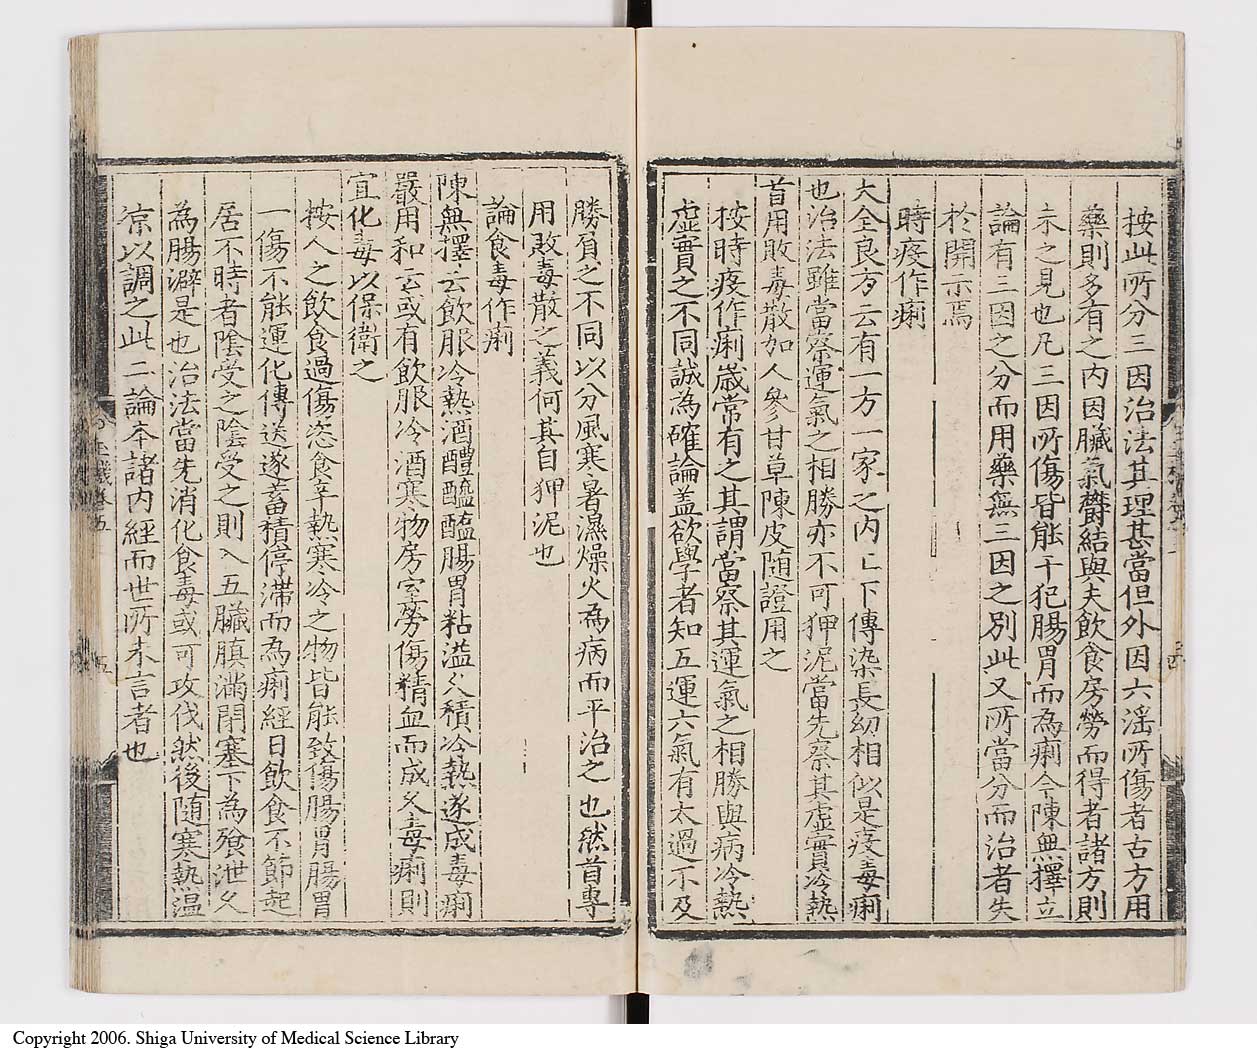 按此所分三因治法其理甚當但外因六淫所傷者古方用
藥則多有之内因臟氣欝結與夫飲食房勞而得者諸方則
未之見也凡三因所傷皆能干犯腸胃而為痢今陳無擇立
論有三因之分而用藥無三因之別此又所當分而治者失
於開示焉
時疫作痢
大全良方云有一方一家之内上下傳染長幼相似是疫毒痢
也治法雖當察運氣之相勝亦不可狎泥當先察其虛實冷熱
首用敗毒散加人參甘草陳皮随證用之
按時疫作痢歲常有之其謂當察其運氣之相勝與病冷熱
虛實之不同誠為確論盖欲學者知五運六氣有太過不及
勝負之不同以分風寒暑濕燥火為病而平治之也然首專
用敗毒散之義何其自狎泥也
論食毒作痢
陳無擇云飲服冷熱酒醴醯醢腸胃粘溢久積冷熱遂成毒痢
嚴用和云或有飲服冷酒寒物房室勞傷精血而成久毒痢則
宜化毒以保衛之
按人之飲食過傷恣食辛熱寒冷之物皆能致傷腸胃腸胃
一傷不能運化傳送遂蓄積停滞而為痢經曰飲食不節起
居不時者陰受之陰受之則入五臟䐜滿閉塞下為飱泄久
為腸澼是也治法當先消化食毒或可攻伐然後随寒熱温
凉以調之此二論本諸内經而世所未言者也
Copyright 2006. Shiga University of Medical Science Library